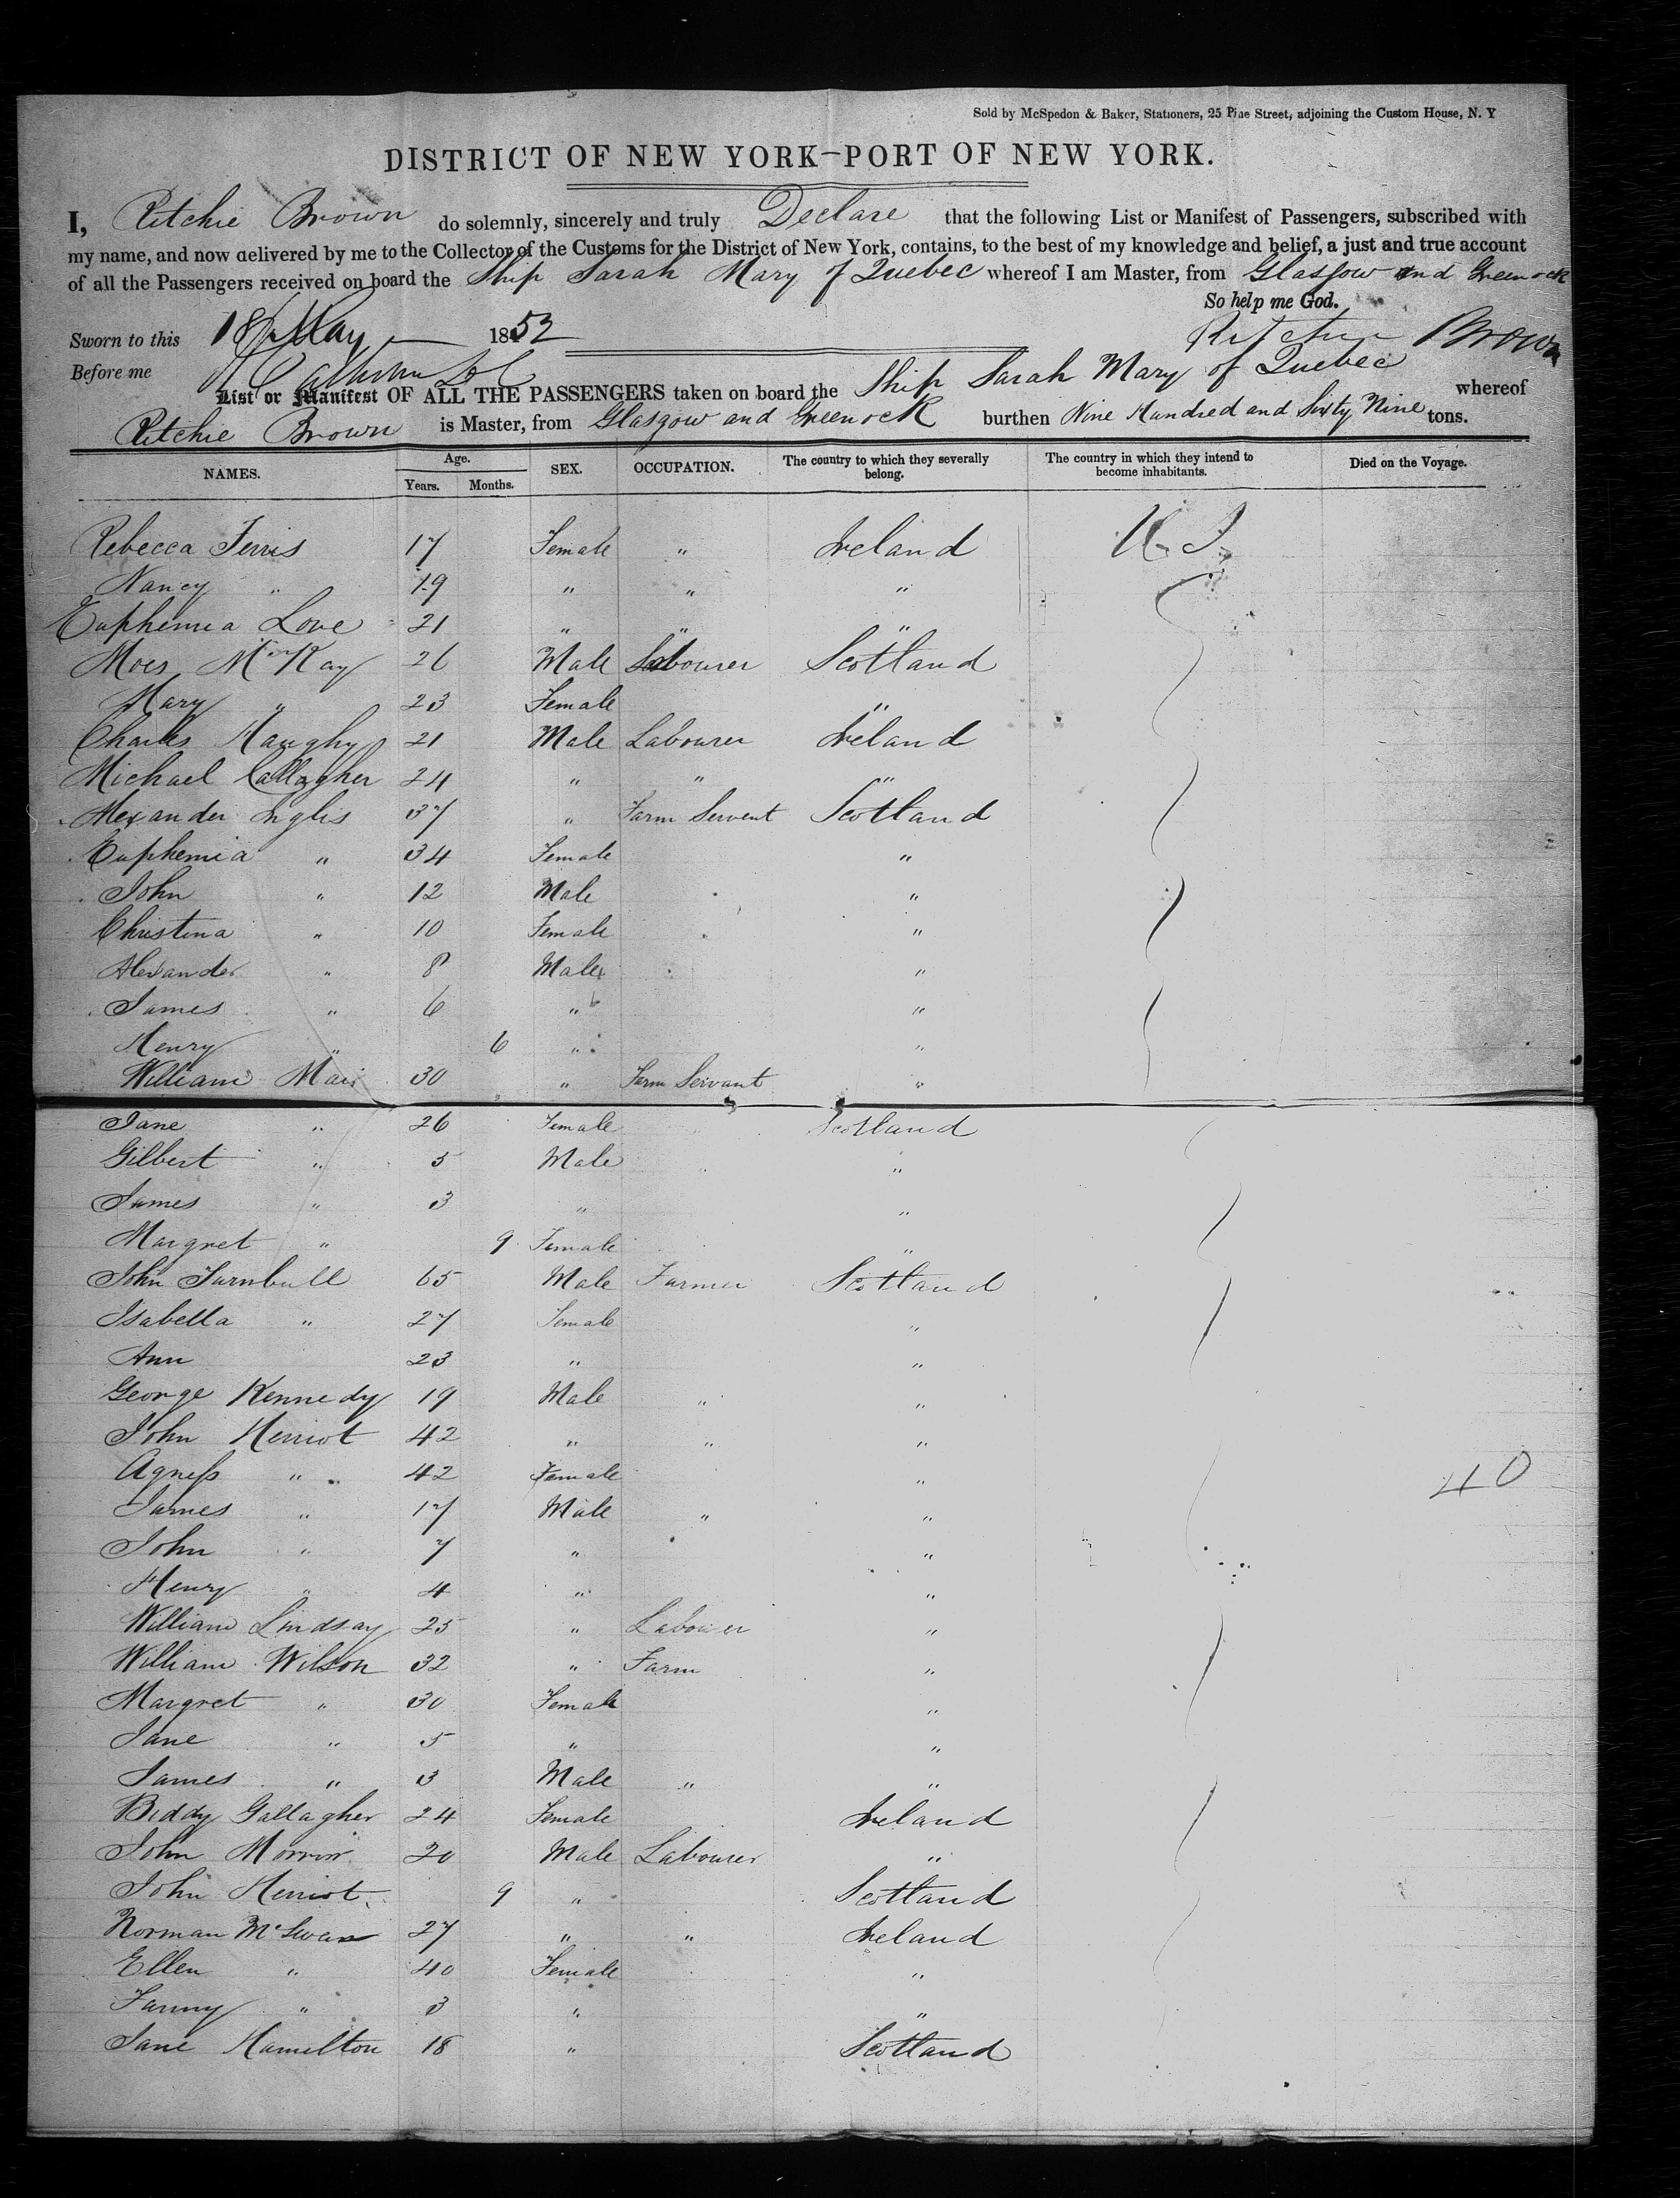 Sold by McSpedon & Baker, Stationers, 25 Pine Street, adjoining the Custom House, N. Y
DISTRICT OF NEW YORK—PORT OF NEW YORK.
I, Ritchie Brown do solemnly, sincerely and truly Declare that the following List or Manifest of Passengers, subscribed with
my name, and now delivered by me to the Collector of the Customs for the District of New York, contains, to the best of my knowledge and belief, a just and true account
of all the Passengers received on board the Ship Sarah Mary of Quebec whereof I am Master, from Glasgow and Greenock
So help me God.
Sworn to this 18 May 1852 Ritchie Brown
Before me
List or Manifest OF ALL THE PASSENGERS taken on board the Ship Sarah Mary of Quebec whereof
Ritchie Brown is Master, from Glasgow and Greenock burthen Nine Hundred and Sixty Nine tons.
NAMES. Age. Years. Months. SEX. OCCUPATION. The country to which they severally belong. The country in which they intend to become inhabitants. Died on the Voyage.
Rebecca Ferris 17 Female " Ireland U. S.
Nancy " 19 " " "
Euphemia Love 21 " " "
McKay 26 Male Labourer Scotland
Mary " 23 Female "
Charles Haughy 21 Male Labourer Ireland
Michael Callagher 24 " " "
Alexander Inglis 37 " Farm Servent Scotland
Euphemia " 34 Female "
John " 12 Male "
Christina " 10 Female "
Alexander " 8 Male "
James " 6 " "
Henry " 6 " "
William Mair 30 " Farm Servant "
Jane " 26 Female Scotland
Gilbert " 5 Male "
James " 3 " "
Margret " 9 Female "
John Turnbull 65 Male Farmer Scotland
Isabella " 27 Female "
Ann 23 " "
George Kennedy 19 Male " "
John Herriot 42 " " "
Agness " 42 Female "
James " 17 Male " "
John " 7 " "
Henry " 4 " "
William Lindsay 25 " Labourer "
William Wilson 32 " Farm "
Margret " 30 Female "
Jane " 5 " "
James " 3 Male " "
Biddy Gallagher 24 Female Ireland
John 20 Male Labourer "
John Herriot 9 " Scotland
Norman McSwan 27 " " Ireland
Ellen " 40 Female "
Fanny " 3 " "
Jane Hamilton 18 " Scotland
40